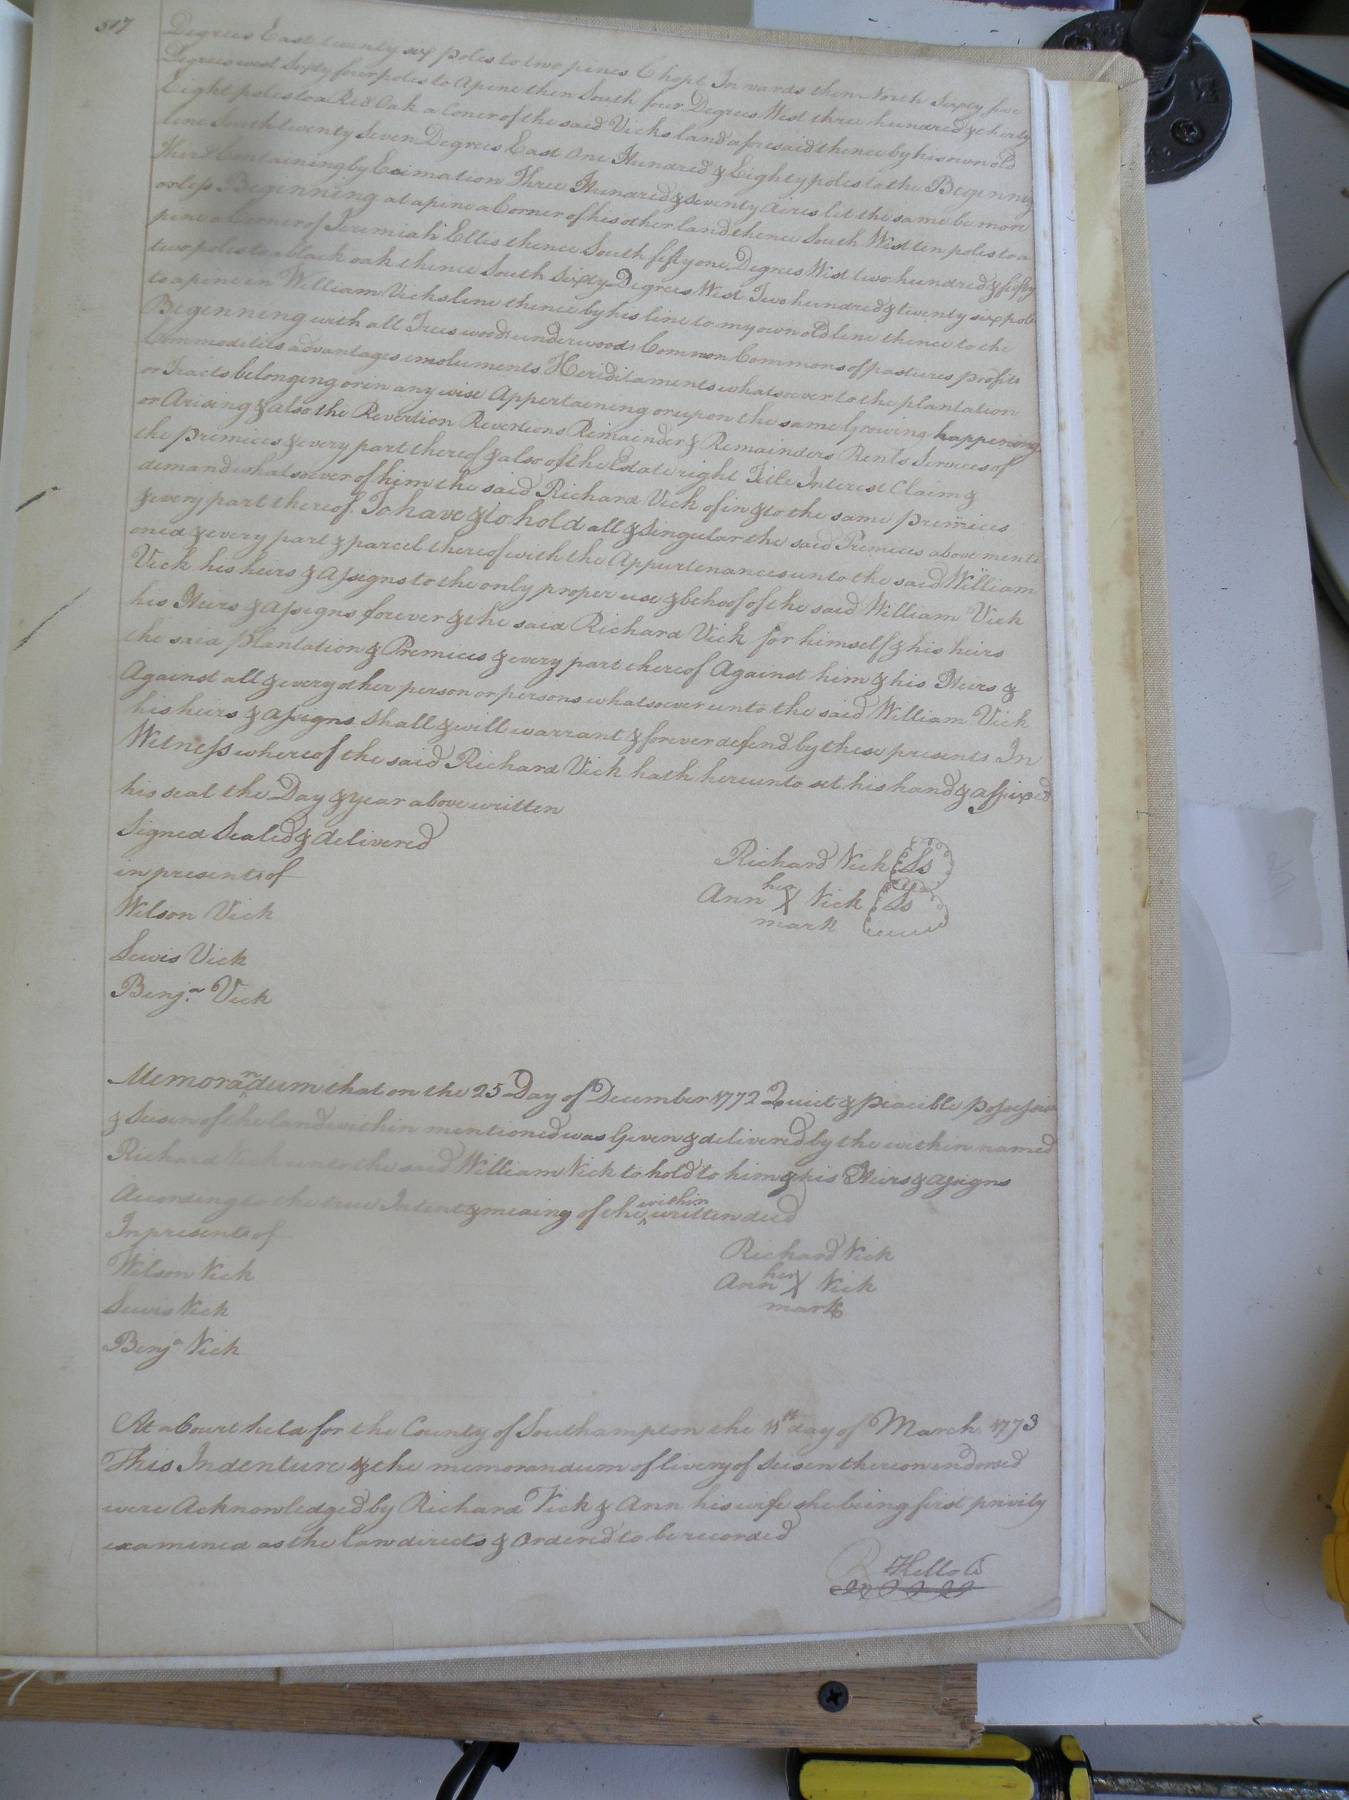 517
Degrees East twenty six poles to two pines Chopt In wards then North Sixty five
Degrees west Sixty four poles to A pine then South four Degrees West three hundred & thirty
Eight poles to a Red Oak a Coner of the said Vicks land aforesaid thence by his own old
line South twenty Seven Degrees East One Hundred & Eighty poles to the Beginny
Third Containing by Esimation Three Hundred & Seventy Acres let the same be more
or less Beginning at a pine a Corner of his other land thence South West ten poles to a
pine a Corner of Jeremiah Ellis thence South fifty one Degrees West two hundred & fifty
two poles to a black oak thence South Sixty Degrees West Two hundred & twenty six pole
to a pine in William Vicks line thence by his line to my own old line thence to the
Beginning with all Trees woods underwoods Common Commons of pastures profits
Commodities advantages emoluments Hereditaments whatsoever to the plantation
or Tracts belonging or in any wise Appertaining or upon the same Growing happening
or Arising & also the Revertion Revertions Remainder & Remainders Rents Services of
the premices & every part thereof & also of the Estate right Title Interest Claim &
demand whatsoever of him the said Richard Vick of in & to the same premices
& every part thereof To have & to hold all & Singular the said Premices above menti
oned & every part & parcel thereof with the Appurtenances unto the said William
Vick his heirs & Assigns to the only proper use & behoof of the said William Vick
his Heirs & Assigns forever & the said Richard Vick for himself & his heirs
the said plantation & Premices & every part thereof Against him & his Heirs &
Against all & every other person or persons whatsoever unto the said William Vick
his heirs & Assigns Shall & will warrant & forever defend by these presents In
Witness whereof the said Richard Vick hath hereunto set his hand & affixed
his seal the Day & year above written
Signed Sealed & delivered
in presents of
Richard Vick Ls
Wilson Vick
Ann her X mark Vick Ls
Lewis Vick
Benja Vick
Memorandum that on the 25 Day of December 1772 Quiet & peacible possession
& Seisen of the land within mentioned was Given & delivered by the within named
Richard Vick unto the said William Vick to hold to him & his Heirs & Assigns
According to the true Intent & meaing of the within written deed
In presents of
Richard Vick
Wilson Vick
Ann her X mark Vick
Lewis Vick
Benja Vick
At a Court held for the County of Southampton the 11th day of March 1773
This Indenture & the memorandum of livery of Seisen thereon indorsed
were Acknowledged by Richard Vick & Ann his wife she being first privily
examened as the law directs & Ordered to be recorded